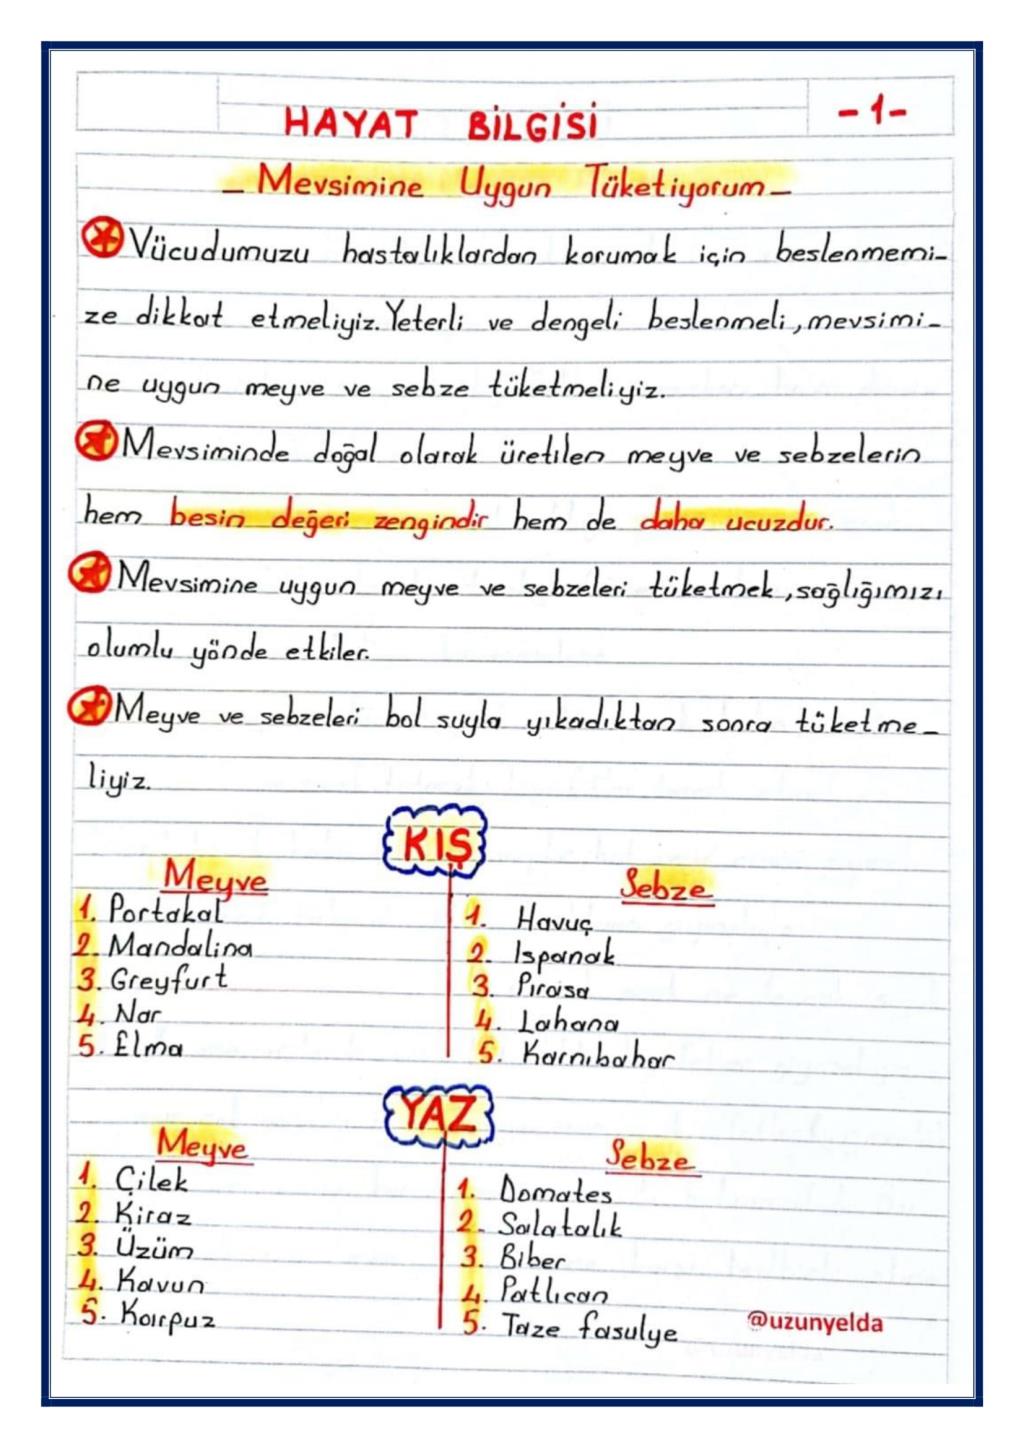 HAYAT BİLGİSİ
-1-
- Mevsimine Uygun Tüketiyorum -
Vücudumuzu hastalıklardan korumak için beslenmemi-
ze dikkat etmeliyiz. Yeterli ve dengeli beslenmeli, mevsimi-
ne uygun meyve ve sebze tüketmeliyiz.
Mevsiminde doğal olarak üretilen meyve ve sebzelerin
hem besin değeri zengindir hem de daha ucuzdur.
Mevsimine uygun meyve ve sebzeleri tüketmek, sağlığımızı
olumlu yönde etkiler.
Meyve ve sebzeleri bol suyla yıkadıktan sonra tüketme-
liyiz.
KIŞ
Meyve
1. Portakal
2. Mandalina
3. Greyfurt
4. Nar
5. Elma
Sebze
1. Havuç
2. Ispanak
3. Pırasa
4. Lahana
5. Karnıbahar
YAZ
Meyve
1. Çilek
2. Kiraz
3. Üzüm
4. Kavun
5. Karpuz
Sebze
1. Domates
2. Salatalık
3. Biber
4. Patlıcan
5. Taze fasulye
@uzunyelda